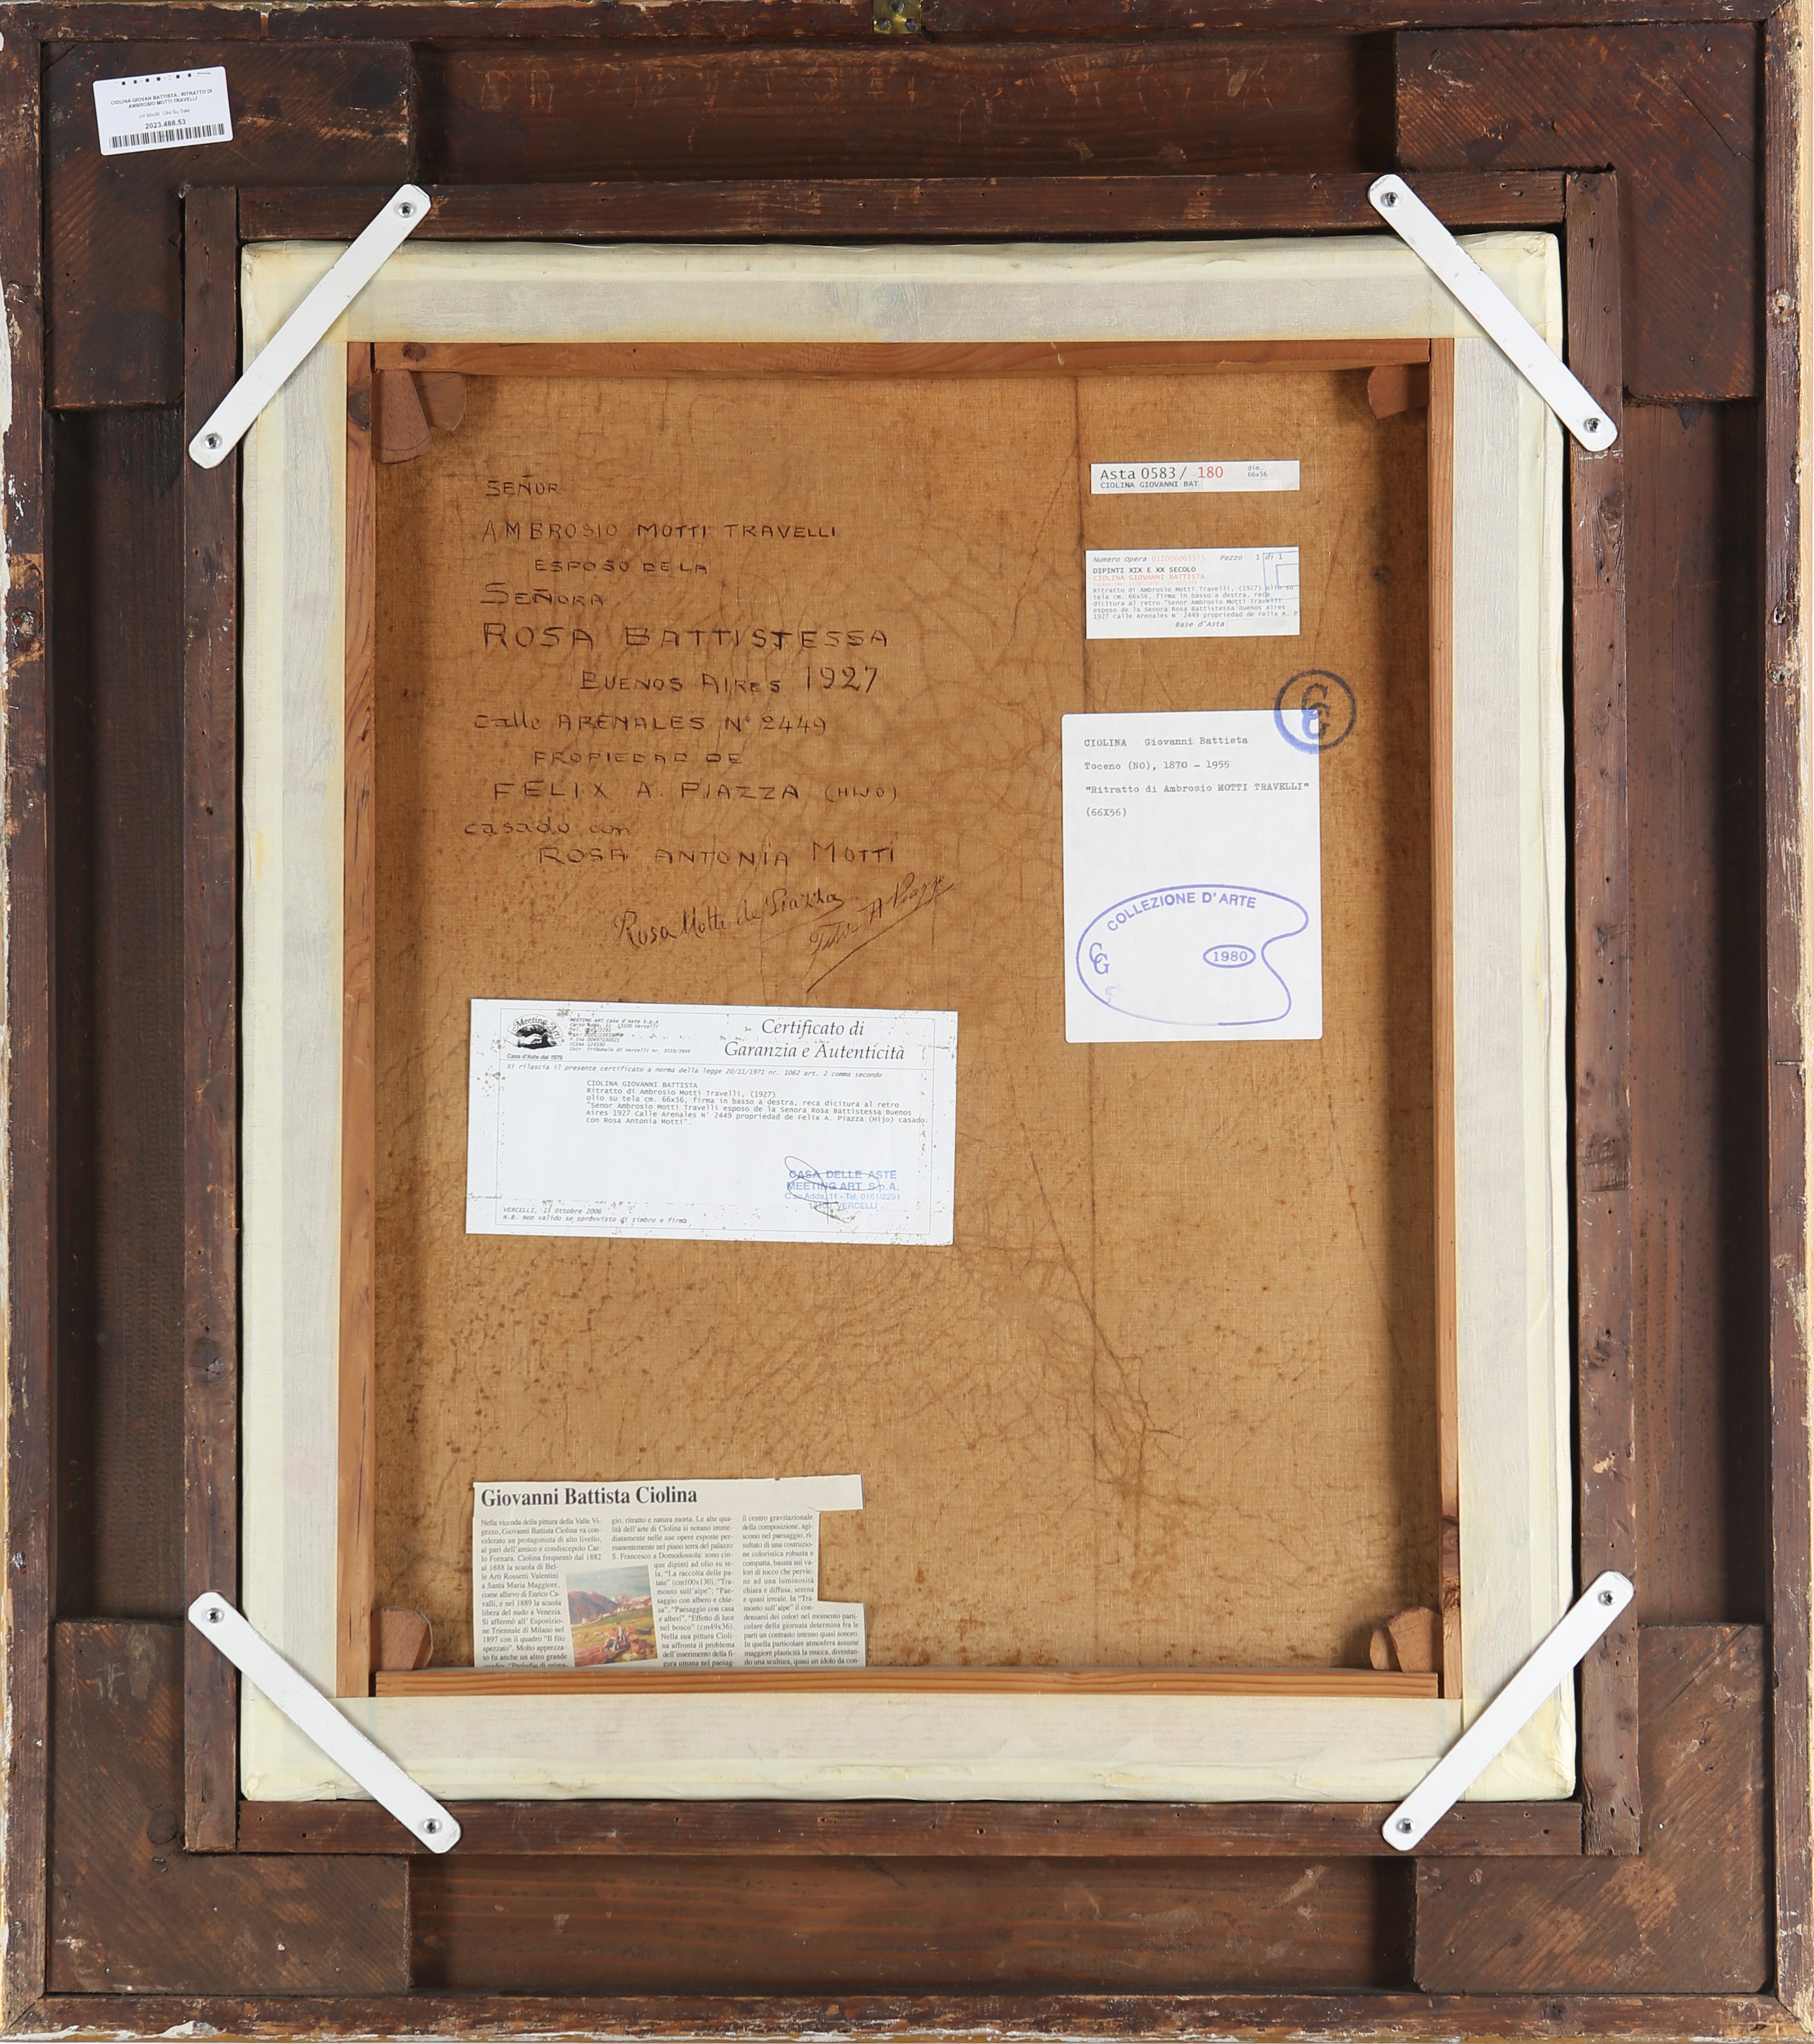 CIOLINA GIOVAN BATTISTA - RITRATTO DI
AMBROSIO MOTTI TRAVELLI
2023.488.53
SEÑOR
AMBROSIO MOTTI TRAVELLI
ESPOSO DE LA
SEÑORA
ROSA BATTISTESSA
BUENOS AIRES 1927
Calle ARENALES Nº 2449
PROPIEDAD DE
FELIX A. PIAZZA (HIJO)
casado con
ROSA ANTONIA MOTTI
Rosa Motti de Piazza
Felix A Piazza
Asta 0583/ 180
dim.
66x56
CIOLINA GIOVANNI BAT
Numero Opera 012006003575 Pezzo 1 di 1
DIPINTI XIX E XX SECOLO
CIOLINA GIOVANNI BATTISTA
Ritratto di Ambrosio Motti Travelli, (1927) olio su
tela cm. 66x56, firma in basso a destra, reca
dicitura al retro "Senor Ambrosio Motti Travelli
esposo de la Senora Rosa Battistessa Buenos Aires
1927 Calle Arenales N° 2449 propriedad de Felix A. P
Base d'Asta
CIOLINA Giovanni Battista
Toceno (NO), 1870 - 1955
"Ritratto di Ambrosio MOTTI TRAVELLI"
(66X56)
COLLEZIONE D'ARTE
CG
1980
Meeting Art
Casa d'Aste dal 1979
MEETING ART Casa d'Aste S.p.A
Corso Adda, 11 13100 Vercelli
Certificato di
Garanzia e Autenticità
Si rilascia il presente certificato a norma della legge 20/11/1971 nr. 1062 art. 2 comma secondo
CIOLINA GIOVANNI BATTISTA
Ritratto di Ambrosio Motti Travelli, (1927)
olio su tela cm. 66x56, firma in basso a destra, reca dicitura al retro
"Senor Ambrosio Motti Travelli esposo de la Senora Rosa Battistessa Buenos
Aires 1927 Calle Arenales N° 2449 propriedad de Felix A. Piazza (Hijo) casado
con Rosa Antonia Motti".
CASA DELLE ASTE
MEETING ART S.p.A.
C.so Adda, 11 - Tel. 0161/2291
VERCELLI
VERCELLI, 15 Ottobre 2006
N.B. Non valido se sprovvisto di timbro e firma
Giovanni Battista Ciolina
Nella vicenda della pittura della Valle Vi-
gezzo, Giovanni Battista Ciolina va con-
siderato un protagonista di alto livello,
al pari dell'amico e condiscepolo Car-
lo Fornara. Ciolina frequentò dal 1882
al 1888 la scuola di Bel-
le Arti Rossetti Valentini
a Santa Maria Maggiore,
come allievo di Enrico Ca-
valli, e nel 1889 la scuola
libera del nudo a Venezia.
Si affermò all' Esposizio-
ne Triennale di Milano nel
1897 con il quadro "Il filo
spezzato". Molto apprezza-
to fu anche un altro grande
quadro, "Preludio di prima-
gio, ritratto e natura morta. Le alte qua-
lità dell'arte di Ciolina si notano imme-
diatamente nelle sue opere esposte per-
manentemente nel piano terra del palazzo
S. Francesco a Domodossola: sono cin-
que dipinti ad olio su te-
la, "La raccolta delle pa-
tate" (cm100x130), "Tra-
monto sull'alpe"; "Pae-
saggio con albero e chie-
sa", "Paesaggio con casa
e alberi", "Effetto di luce
nel bosco" (cm49x36).
Nella sua pittura Cioli-
na affronta il problema
dell'inserimento della fi-
gura umana nel paesag-
il centro gravitazionale
della composizione, agi-
scono nel paesaggio, ri-
sultato di una costruzio-
ne coloristica robusta e
compatta, basata sui va-
lori di tocco che pervie-
ne ad una luminosità
chiara e diffusa, serena
e quasi irreale. In "Tra-
monto sull'alpe" il con-
densarsi dei colori nel momento parti-
colare della giornata determina fra le
parti un contrasto intenso quasi sonoro.
In quella particolare atmosfera assume
maggiore plasticità la mucca, diventan-
do una scultura, quasi un idolo da con-